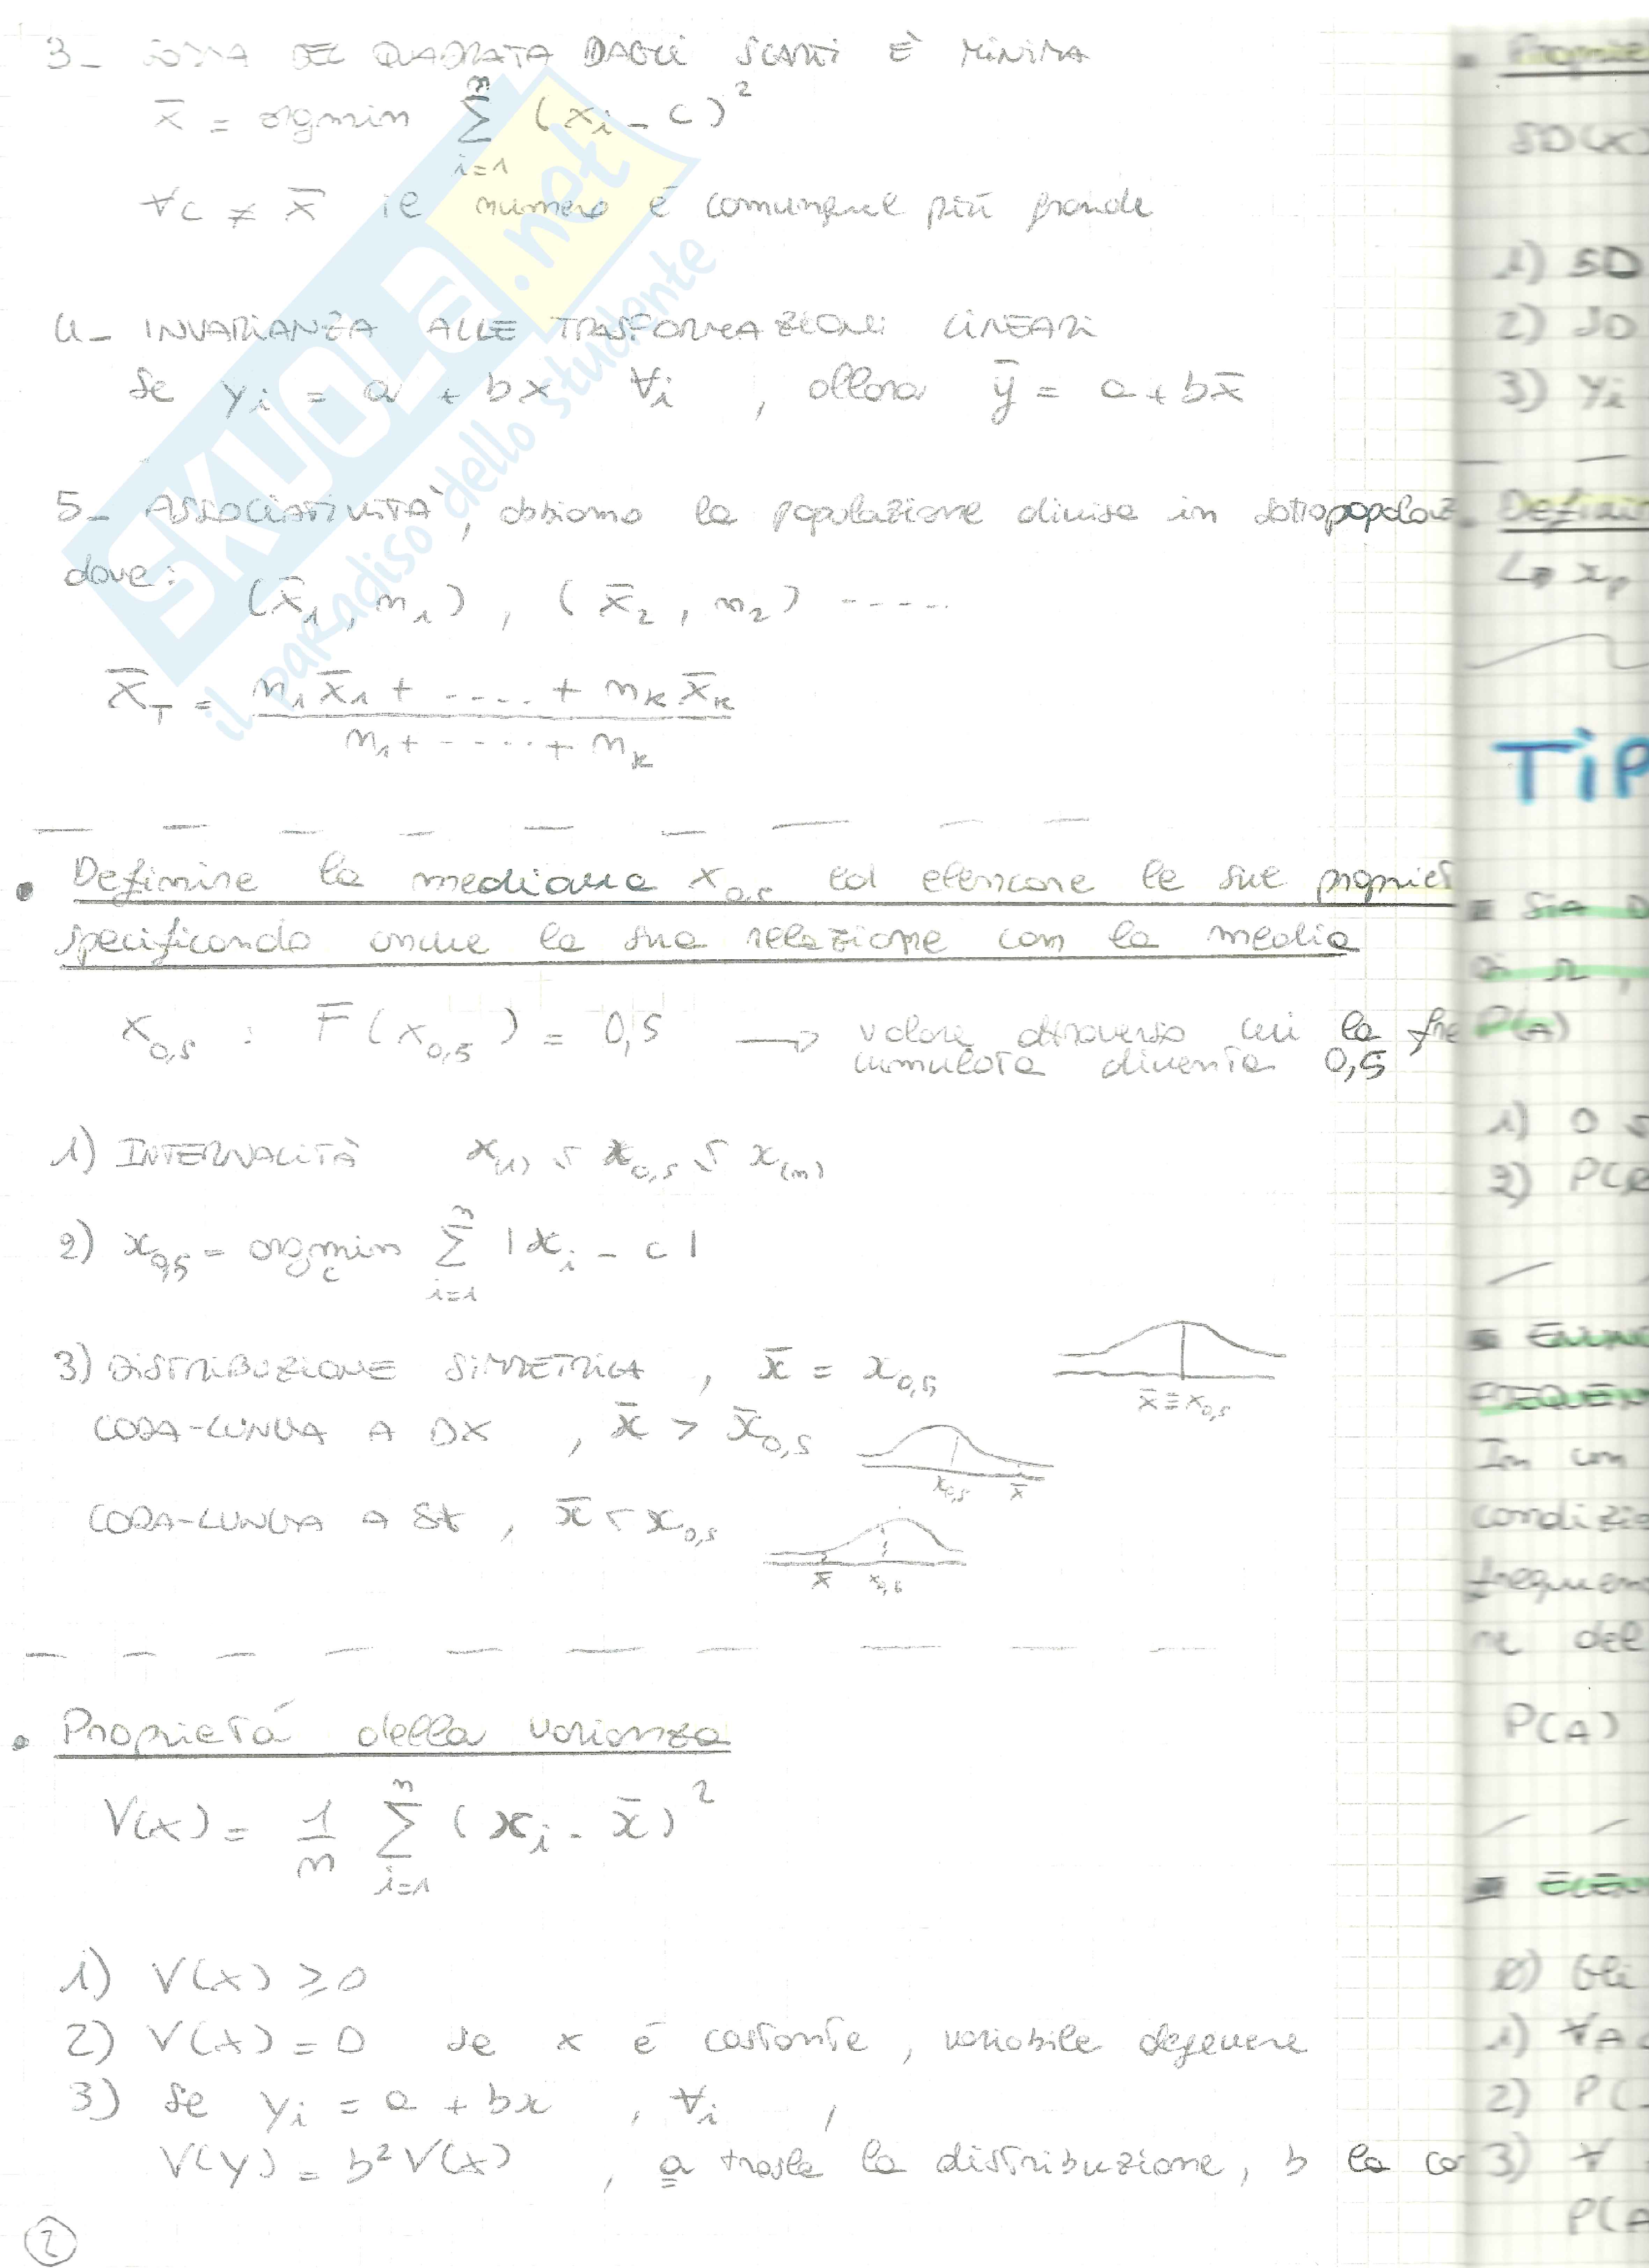 3- SOMMA DEL QUADRATA DAGLI SCARTI È MINIMA
x̄ = argmin Σ_{i=1}^{n} (x_i - c)²
∀c ≠ x̄ il numero é comunque più grande
4- INVARIANZA ALLE TRASFORMAZIONI LINEARI
Se y_i = a + bx ∀i , allora ȳ = a + bx̄
5- ASSOCIATIVITÀ, abbiamo la popolazione divisa in sottopopolaz
dove:
(x̄_1, n_1), (x̄_2, n_2) -----
x̄_T = (n_1 x̄_1 + ..... + n_k x̄_k) / (n_1 + ..... + n_k)
• Definire la mediana x_0,5 ed elencare le sue propriet
specificando anche la sua relazione con la media
x_0,5 : F(x_0,5) = 0,5 → valore attraverso cui la fre
cumulata diventa 0,5
1) INTERNALITÀ x_(1) ≤ x_0,5 ≤ x_(n)
2) x_0,5 = argmin_c Σ_{i=1}^{n} |x_i - c|
3) DISTRIBUZIONE SIMMETRICA , x̄ = x_0,5
x̄ ≡ x_0,5
CODA-LUNGA A DX , x̄ > x̄_0,5
x_0,5 x̄
CODA-LUNGA A SX , x̄ < x_0,5
x̄ x_0,5
• Proprietá della varianza
V(x) = 1/n Σ_{i=1}^{n} (x_i - x̄)²
1) V(x) ≥ 0
2) V(x) = 0 se x é costante, variabile degenere
3) Se y_i = a + bx , ∀i ,
V(y) = b² V(x) , a trasla la distribuzione, b la co
2
SKUOLA.net
il paradiso dello studente
Proprie
SD(x)
1) SD
2) SD
3) y_i
Defini
↳ x_p
TIP
Sia
di Ω,
P(A)
1) 0 ≤
2) P(
In con
condizio
frequen
ne del
P(A)
0) Gli
1) ∀A
2) P(
3) ∀
P(A